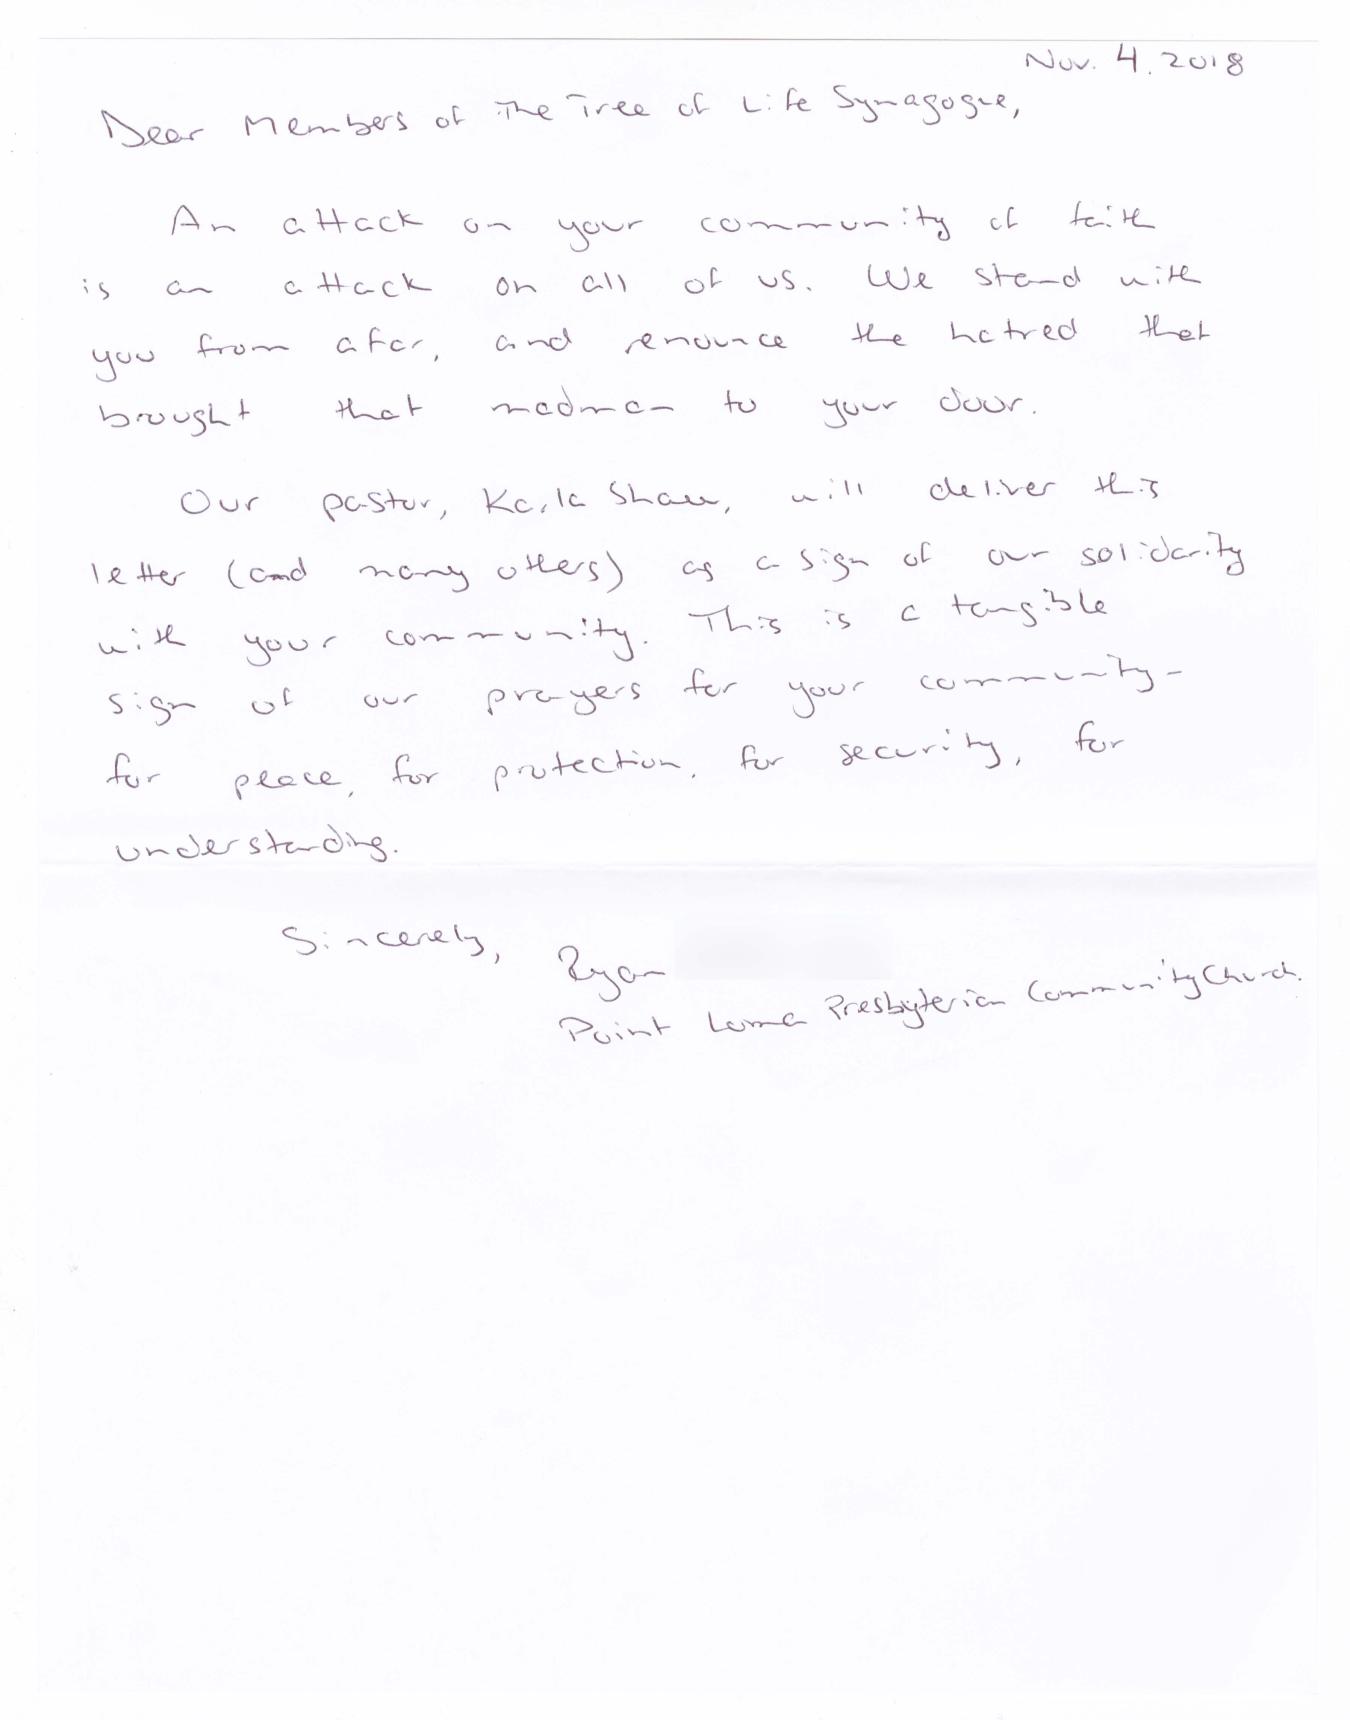 Nov. 4, 2018
Dear Members of The Tree of Life Synagogue,
An attack on your community of faith
is an attack on all of us. We stand with
you from afar, and renounce the hatred that
brought that madman to your door.
Our pastor, Karla Shaw, will deliver this
letter (and many others) as a sign of our solidarity
with your community. This is a tangible
sign of our prayers for your community-
for peace, for protection, for security, for
understanding.
Sincerely, Ryan
Point Loma Presbyterian Community Church.